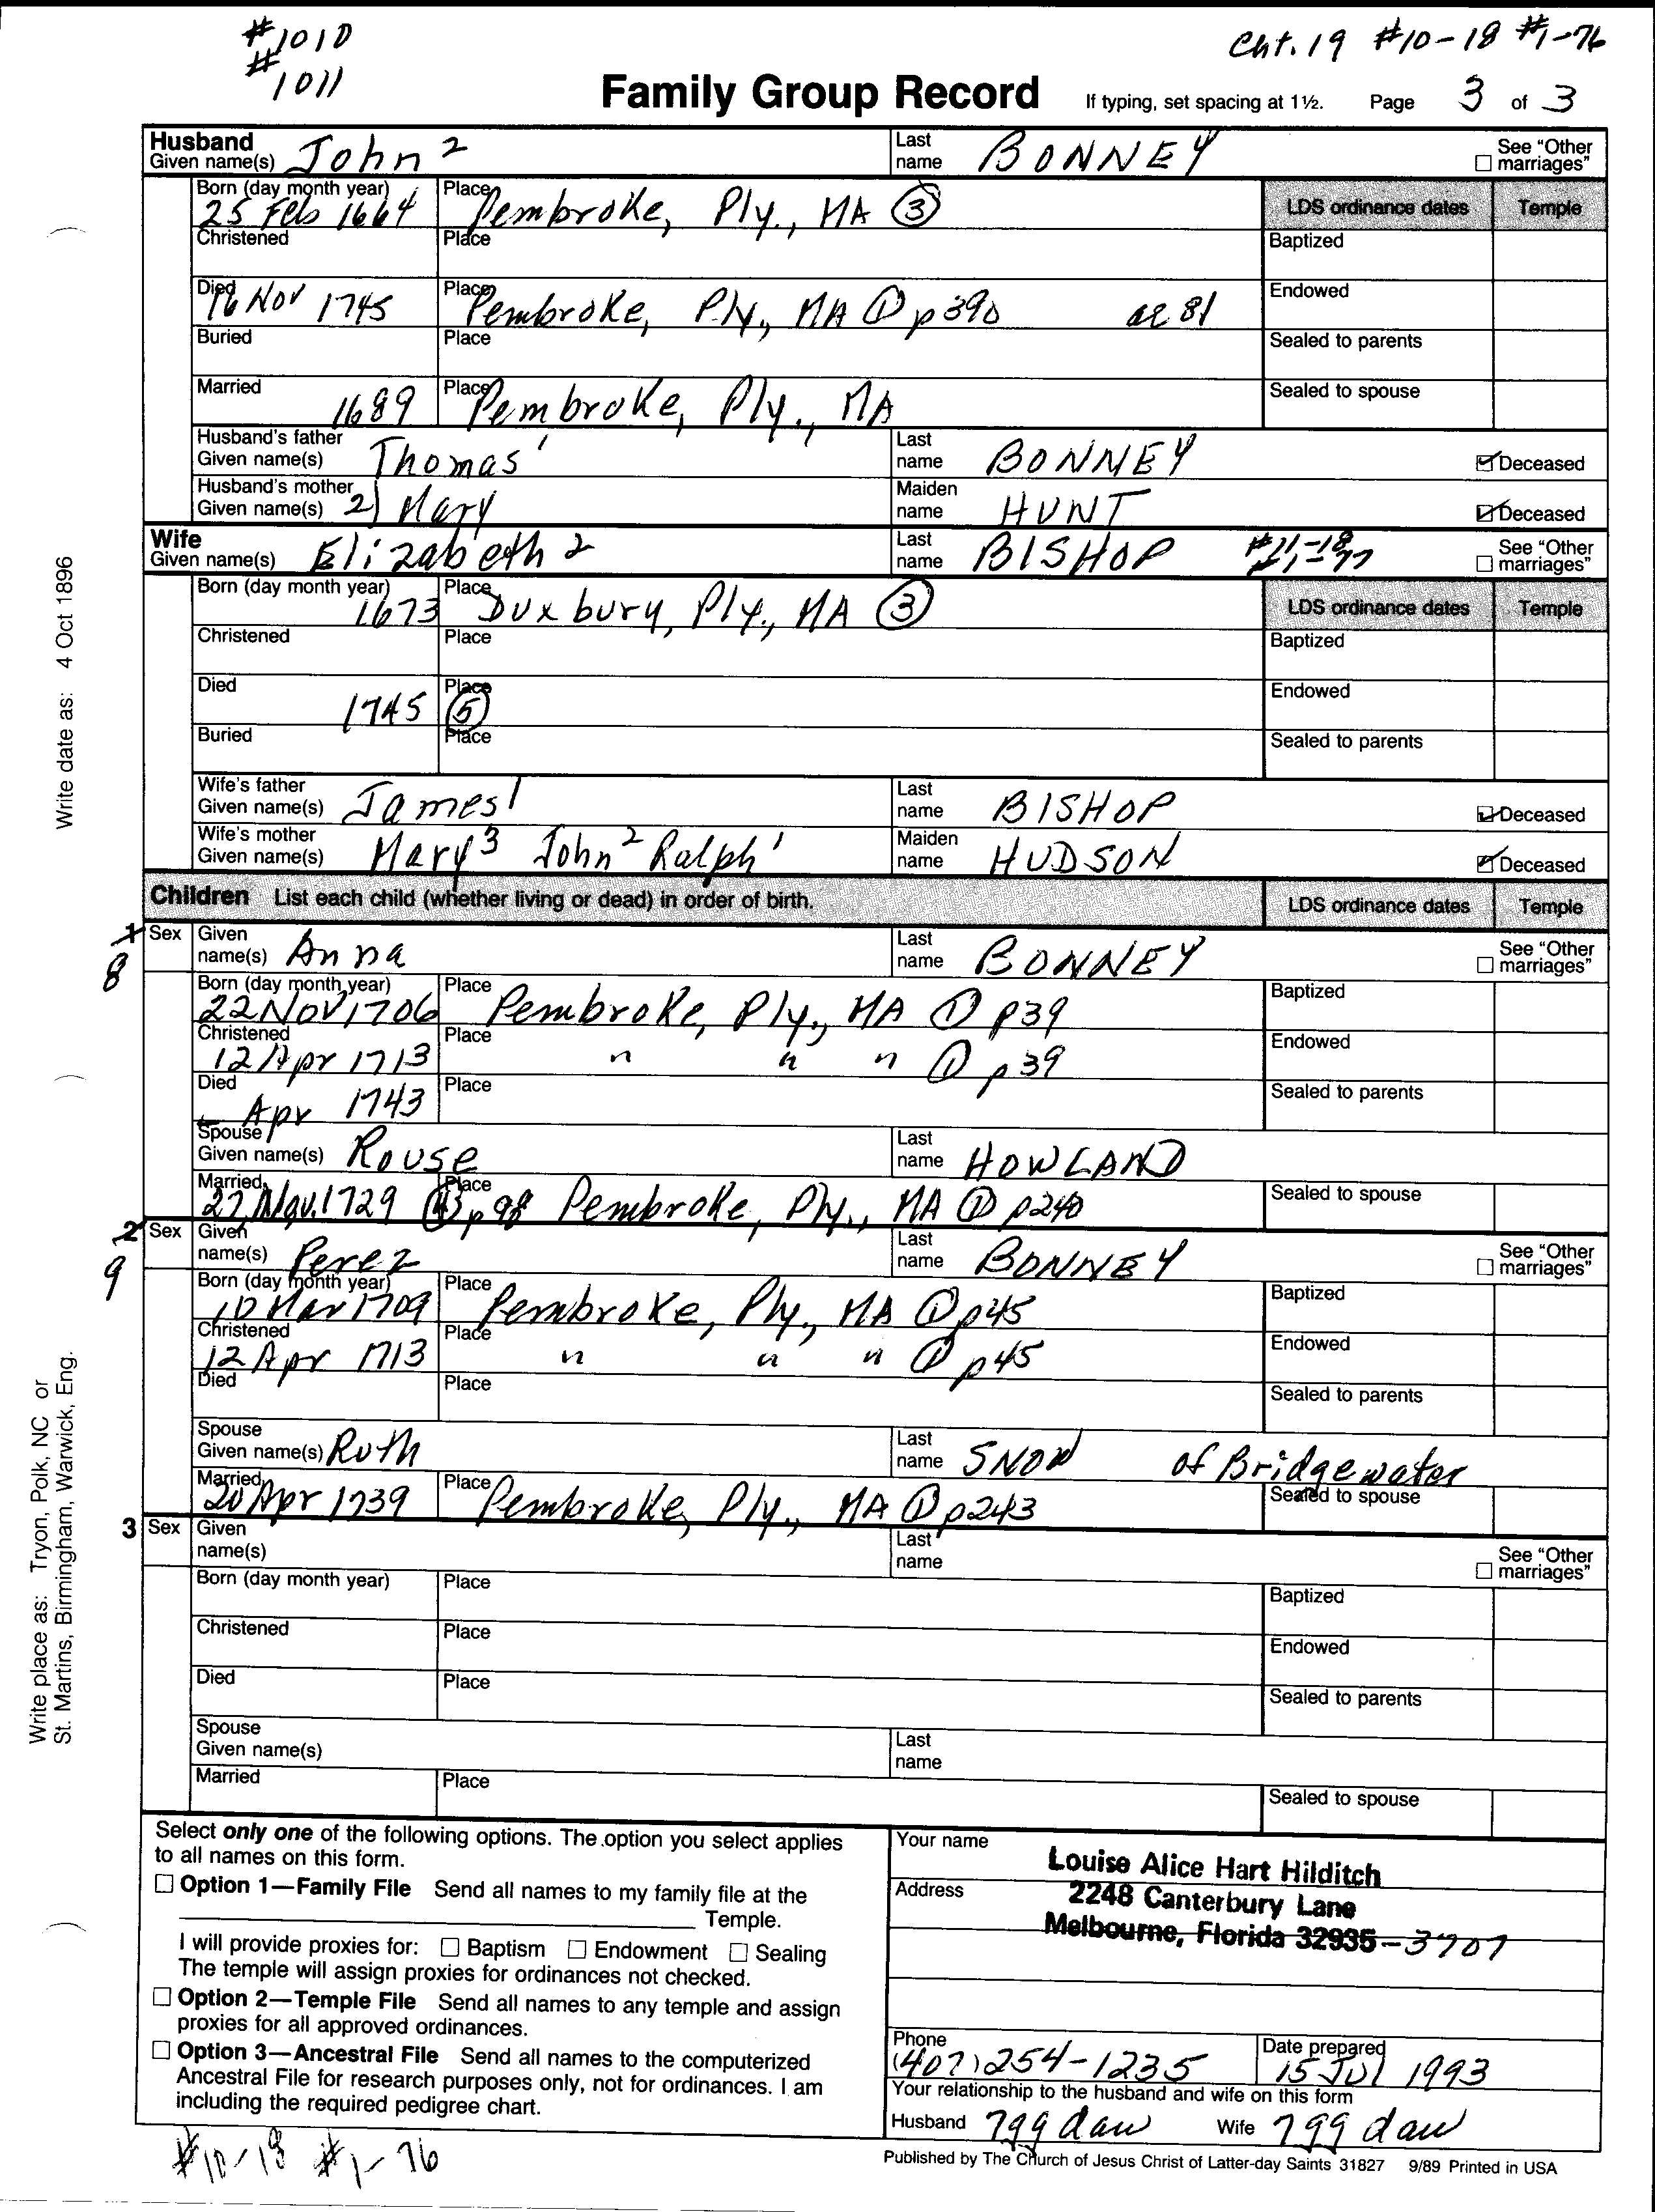 #1010
#1011
Cht. 19 #10-18 #1-76
Family Group Record
If typing, set spacing at 1½. Page 3 of 3
Husband
Given name(s) John 2
Last name BONNEY
See "Other marriages"
Born (day month year) 25 Feb 1664
Place Pembroke, Ply., MA (3)
LDS ordinance dates Temple
Christened
Place
Baptized
Died 16 Nov 1745
Place Pembroke, Ply., MA (1) p 390 ae 81
Endowed
Buried
Place
Sealed to parents
Married 1689
Place Pembroke, Ply., MA
Sealed to spouse
Husband's father
Given name(s) Thomas 1
Last name BONNEY
Deceased
Husband's mother
Given name(s) 2) Mary
Maiden name HUNT
Deceased
Wife
Given name(s) Elizabeth 2
Last name BISHOP #11-18 #1-77
See "Other marriages"
Born (day month year) 1673
Place Duxbury, Ply., MA (3)
LDS ordinance dates Temple
Christened
Place
Baptized
Died 1745
Place (5)
Endowed
Buried
Place
Sealed to parents
Wife's father
Given name(s) James 1
Last name BISHOP
Deceased
Wife's mother
Given name(s) Mary 3 John 2 Ralph 1
Maiden name HUDSON
Deceased
Children List each child (whether living or dead) in order of birth.
LDS ordinance dates Temple
1 8 Sex
Given name(s) Anna
Last name BONNEY
See "Other marriages"
Born (day month year) 22 Nov 1706
Place Pembroke, Ply., MA (1) p39
Baptized
Christened 12 Apr 1713
Place " " " (1) p 39
Endowed
Died - Apr 1743
Place
Sealed to parents
Spouse
Given name(s) Rouse
Last name HOWLAND
Married 27 Nov. 1729
Place p 98 Pembroke, Ply., MA (1) p240
Sealed to spouse
2 9 Sex
Given name(s) Perez
Last name BONNEY
See "Other marriages"
Born (day month year) 10 Mar 1709
Place Pembroke, Ply., MA (1) p45
Baptized
Christened 12 Apr 1713
Place " " " (1) p45
Endowed
Died
Place
Sealed to parents
Spouse
Given name(s) Ruth
Last name SNOW of Bridgewater
Married 20 Apr 1739
Place Pembroke, Ply., MA (1) p243
Sealed to spouse
3 Sex
Given name(s)
Last name
See "Other marriages"
Born (day month year)
Place
Baptized
Christened
Place
Endowed
Died
Place
Sealed to parents
Spouse
Given name(s)
Last name
Married
Place
Sealed to spouse
Select only one of the following options. The option you select applies
to all names on this form.
Option 1—Family File Send all names to my family file at the
Temple.
I will provide proxies for: Baptism Endowment Sealing
The temple will assign proxies for ordinances not checked.
Option 2—Temple File Send all names to any temple and assign
proxies for all approved ordinances.
Option 3—Ancestral File Send all names to the computerized
Ancestral File for research purposes only, not for ordinances. I am
including the required pedigree chart.
Your name
Louise Alice Hart Hilditch
Address
2248 Canterbury Lane
Melbourne, Florida 32935-3707
Phone (407) 254-1235
Date prepared 15 Jul 1993
Your relationship to the husband and wife on this form
Husband 7gg dau Wife 7gg dau
Published by The Church of Jesus Christ of Latter-day Saints 31827 9/89 Printed in USA
#10-18 #1-76
Write date as: 4 Oct 1896
Write place as: Tryon, Polk, NC or
St. Martins, Birmingham, Warwick, Eng.